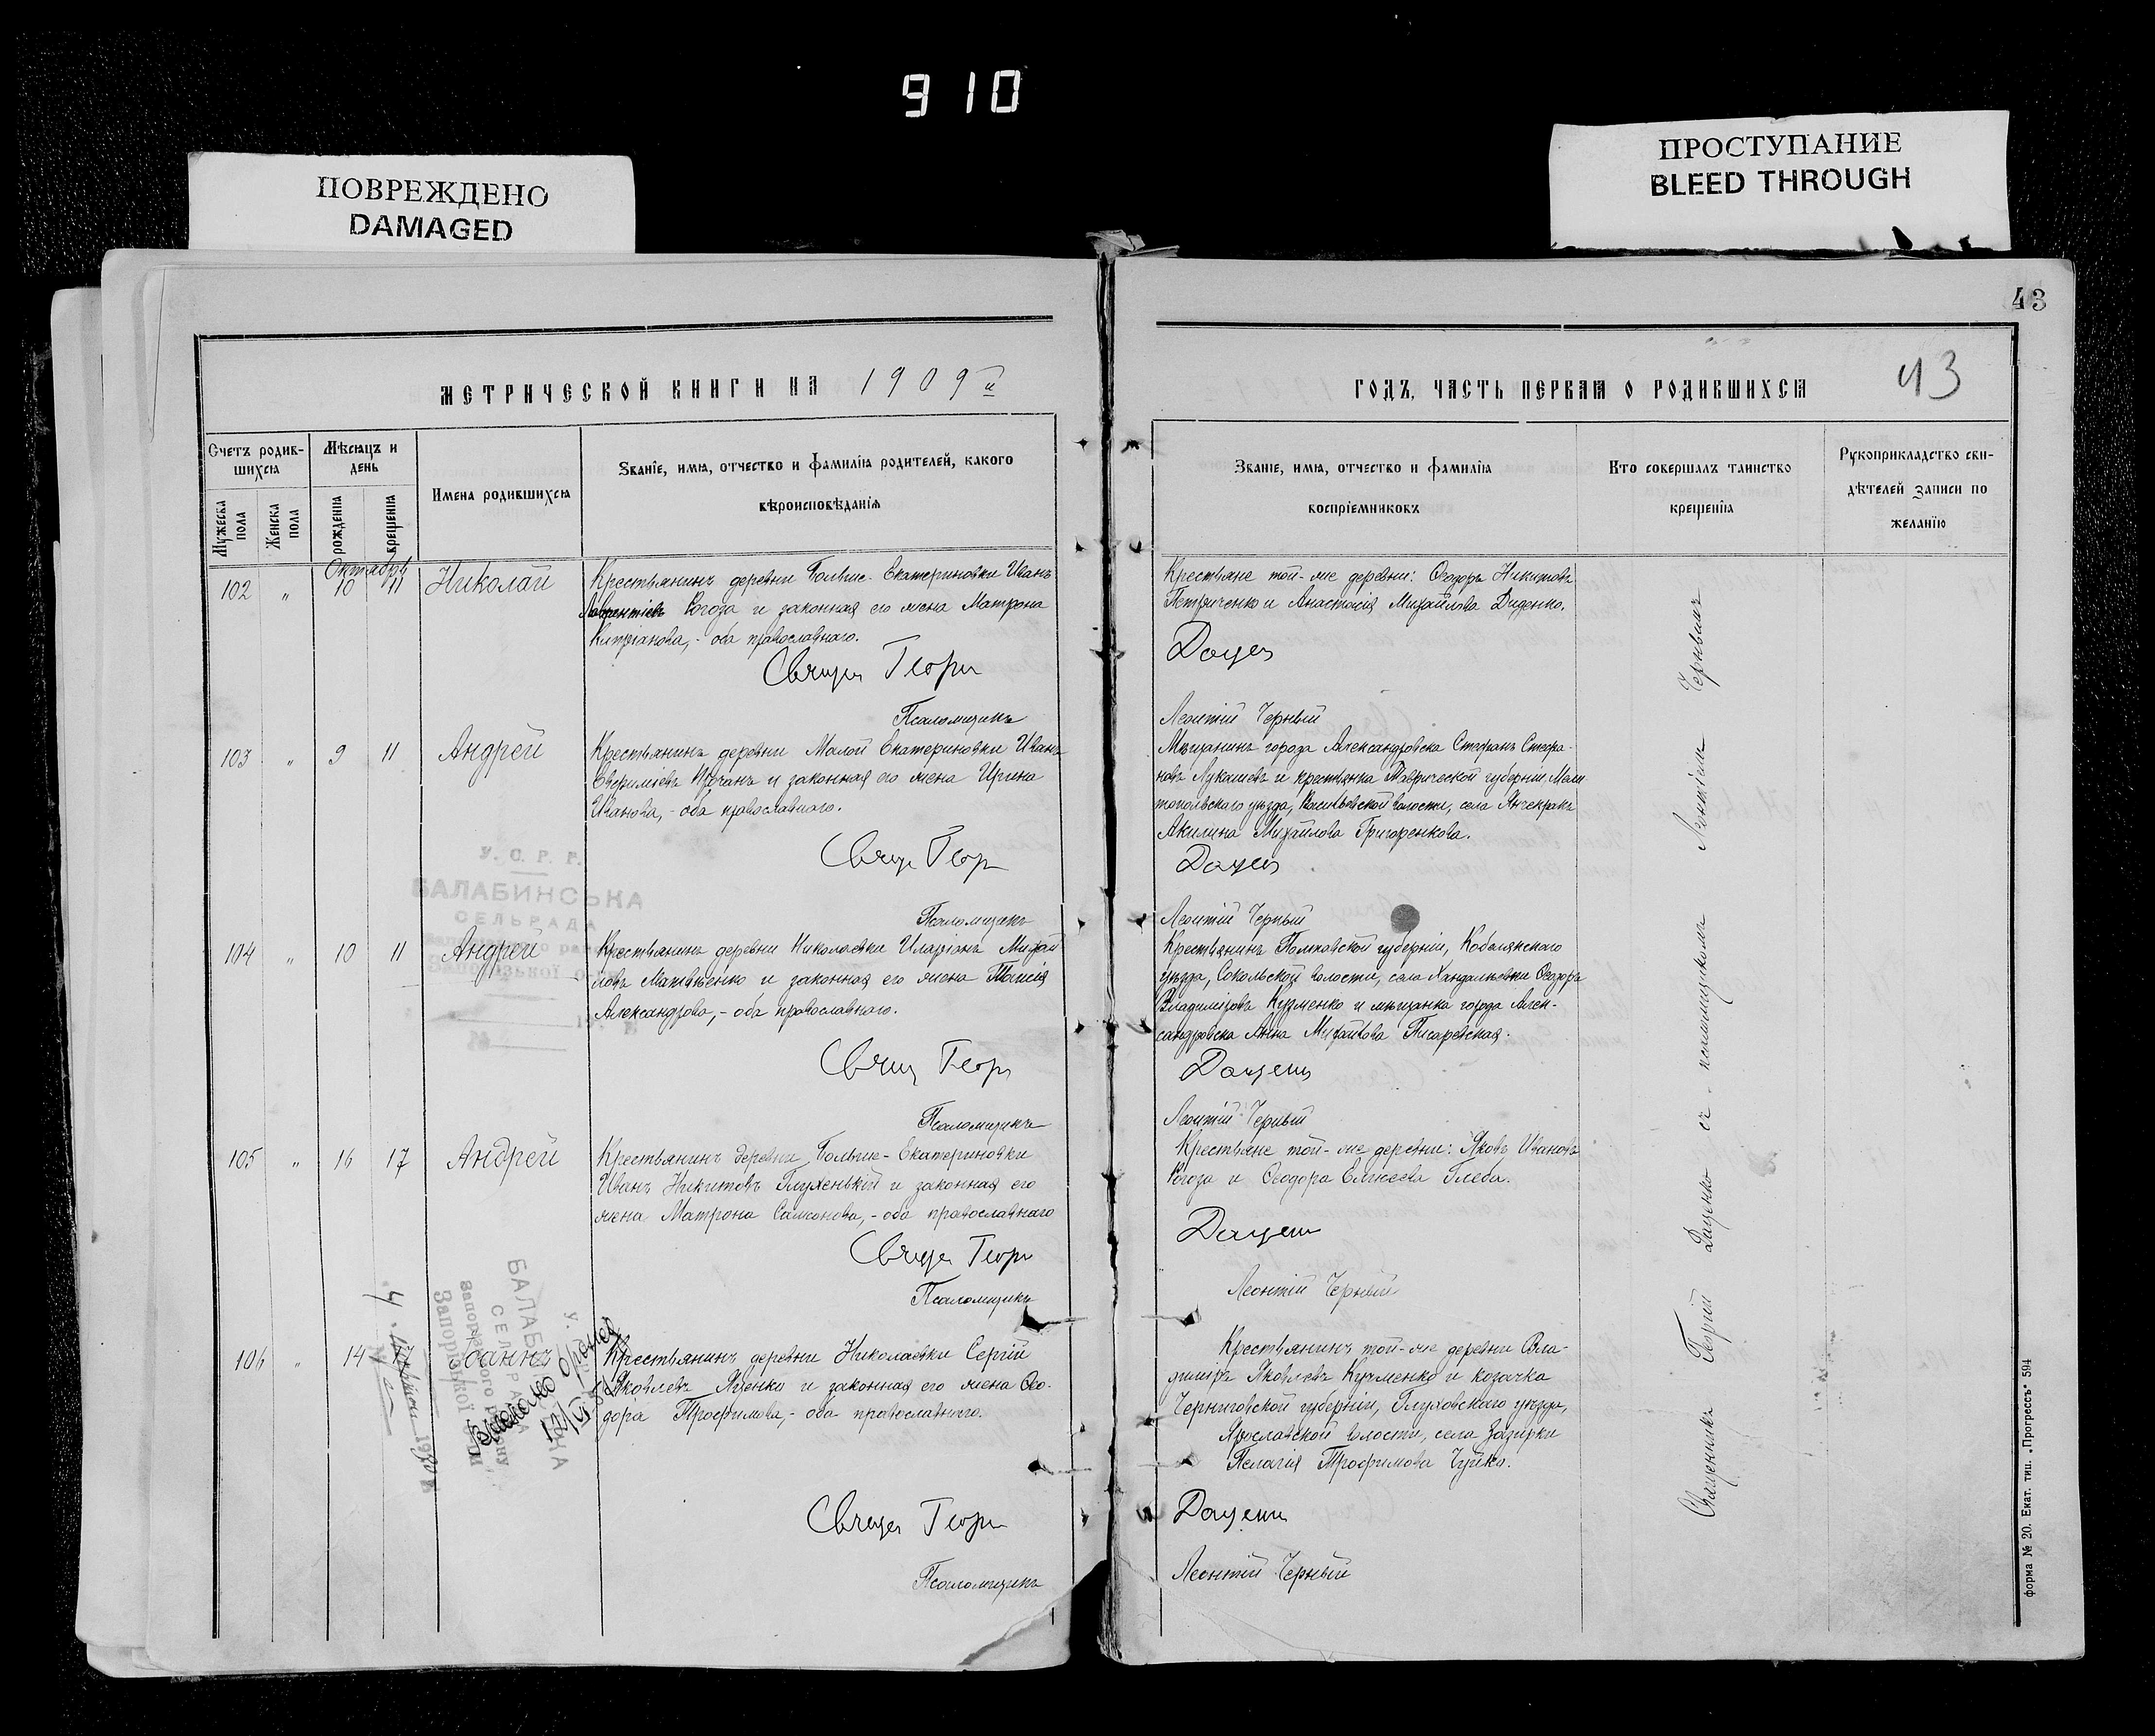 910
ПОВРЕЖДЕНО
DAMAGED
ПРОСТУПАНИЕ
BLEED THROUGH
43
МЕТРИЧЕСКОЙ КНИГИ НА 1909 й
Счетъ родив-
шихся
Мѣсяцъ и
день
Имена родившихся
Званіе, имя, отчество и фамилія родителей, какого
вѣроисповѣданія
Мужеска
пола
Женска
пола
рожденія
крещенія
ГОДЪ, ЧАСТЬ ПЕРВАЯ О РОДИВШИХСЯ
43
Званіе, имя, отчество и фамилія
воспріемниковъ
Кто совершалъ таинство
крещенія
Рукоприкладство сви-
дѣтелей записи по
желанію
Октябрь
102 " 10 11 Николай
Крестьянинъ деревни Больше-Екатериновки Иванъ
Лаврентіевъ Рогоза и законная его жена Матрона
Кипріанова, - оба православнаго.
Крестьяне той-же деревни: Ѳеодоръ Никитовъ
Петриченко и Анастасія Михайлова Диденко.
Свящ Георг
Дацен
Псаломщикъ
Леонтій Черный
103 " 9 11 Андрей
Крестьянинъ деревни Малой Екатериновки Иванъ
Евфиміевъ и законная его жена Ирина
Иванова, - оба православнаго.
Мѣщанинъ города Александровска Стефанъ Стефа-
новъ Лукашевъ и крестьянка Таврической губерніи, Мели
топольскаго уѣзда, Васильевской волости, села Янчекракъ
Акилина Михайлова Григоренкова.
Свящ Геор
Дацен
Псаломщикъ
Леонтій Черный
104 " 10 11 Андрей
Крестьянинъ деревни Николаевки Иларіонъ Михай
ловъ Матвѣенко и законная его жена Таисія
Александрова, - оба православнаго.
Крестьянинъ Полтавской губерніи, Кобелякскаго
уѣзда, Сокольской волости, села Ѳеодоръ
Владиміровъ Кузменко и мѣщанка города Алек-
сандровска Анна Михайлова Писаревская.
Свящ Геор
Даценк
Псаломщикъ
Леонтій Черный
105 " 16 17 Андрей
Крестьянинъ деревни Больше-Екатериновки
Иванъ Никитовъ Глухенькій и законная его
жена Матрона Самсонова, - оба православнаго
Крестьяне той-же деревни: Яковъ Ивановъ
Рогоза и Ѳеодора Елисеева Глеба.
Свящ Геор
Даценк
Псаломщикъ
Леонтій Черный
106 " 14 17 Іоаннъ
Крестьянинъ деревни Николаевки Сергій
Яковлевъ Яценко и законная его жена Ѳео-
дора Трофимова, - оба православнаго.
Крестьянинъ той-же деревни Вла-
диміръ Яковлевъ Кузменко и козачка
Черниговской губерніи, Глуховскаго уѣзда,
Ярославской волости, села Зазирки
Пелагія Трофимова Чуйко.
Свящ Геор
Даценк
Псаломщикъ
Леонтій Черный
Священникъ Георгій Даценко съ псаломщикомъ Леонтіемъ Чернымъ
У. С. Р. Р.
БАЛАБИНСЬКА
СЕЛЬРАДА
У.
БАЛАБ
СЕЛЬРАДА
Запорізької
форма № 20. Екат. тип. „Прогрессъ“ 594